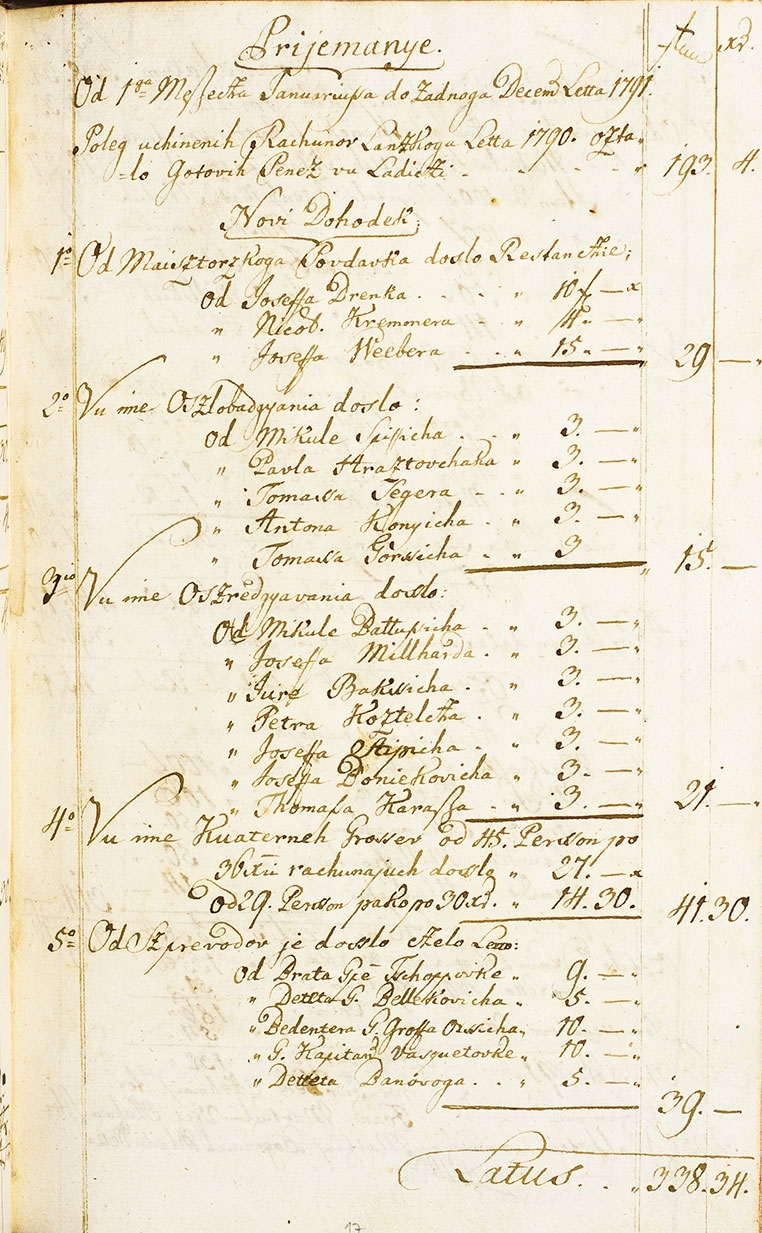 Prijemanye.
Od 1ga Meszecza Januariusa do Zadnoga Decemb Letta 1791.
Poleg uchinenih Rachunov Lanzkoga Letta 1790. ozta
=lo Gotovih Penez vu Ladiczi - - - - " 193. 4.
Novi Dohodek;
1o Od Maisztorzkoga Povdavka doslo Restanczie;
Od Joseffa Drenka . . . " 10 f — x
" Nicol. Kremmera - - " 4. — "
" Joseffa Weebera - . . " 15. — " 29 — "
2o Vu ime Oszlobadgyania doslo:
Od Mikule Spissicha . . " 3. — "
" Pavla Hraztovchaka " 3. — "
" Tomassa Segera - - . " 3. — "
" Antona Konyicha - . " 3. — "
" Tomassa Görssicha - . " 3 " 15. —
3io Vu ime Oszredgyavania doslo:
Od Mikule Battussicha - . " 3. — "
" Joseffa Millharda . " 3. — "
" Jure Bakssicha . . " 3. — "
" Petra Kozteleza . " 3. — "
" Joseffa Stipicha - . " 3. — "
" Joseffa Doniekovicha " 3. — "
" Thomasa Karassa - . " 3. — " 21. — "
4o Vu ime Kuaterneh Grossev od 45. Persson po
36 xii rachunajuch doslo " 27. — x
Od 29. Persson pako po 30 xr. " 14. 30. 41. 30.
5o Od Szprevodov je doslo czelo Letto:
Od Brata Gñe Tschoppovke " 9. — "
" Detteta G. Bellekovicha " 5. — "
" Bedentera G. Groffa Orssicha " 10. — "
" G. Kapitan Vasquetovke " 10. — "
" Detteta Banovoga . . " 5. — "
39. —
Latus . . " 338. 34.
17